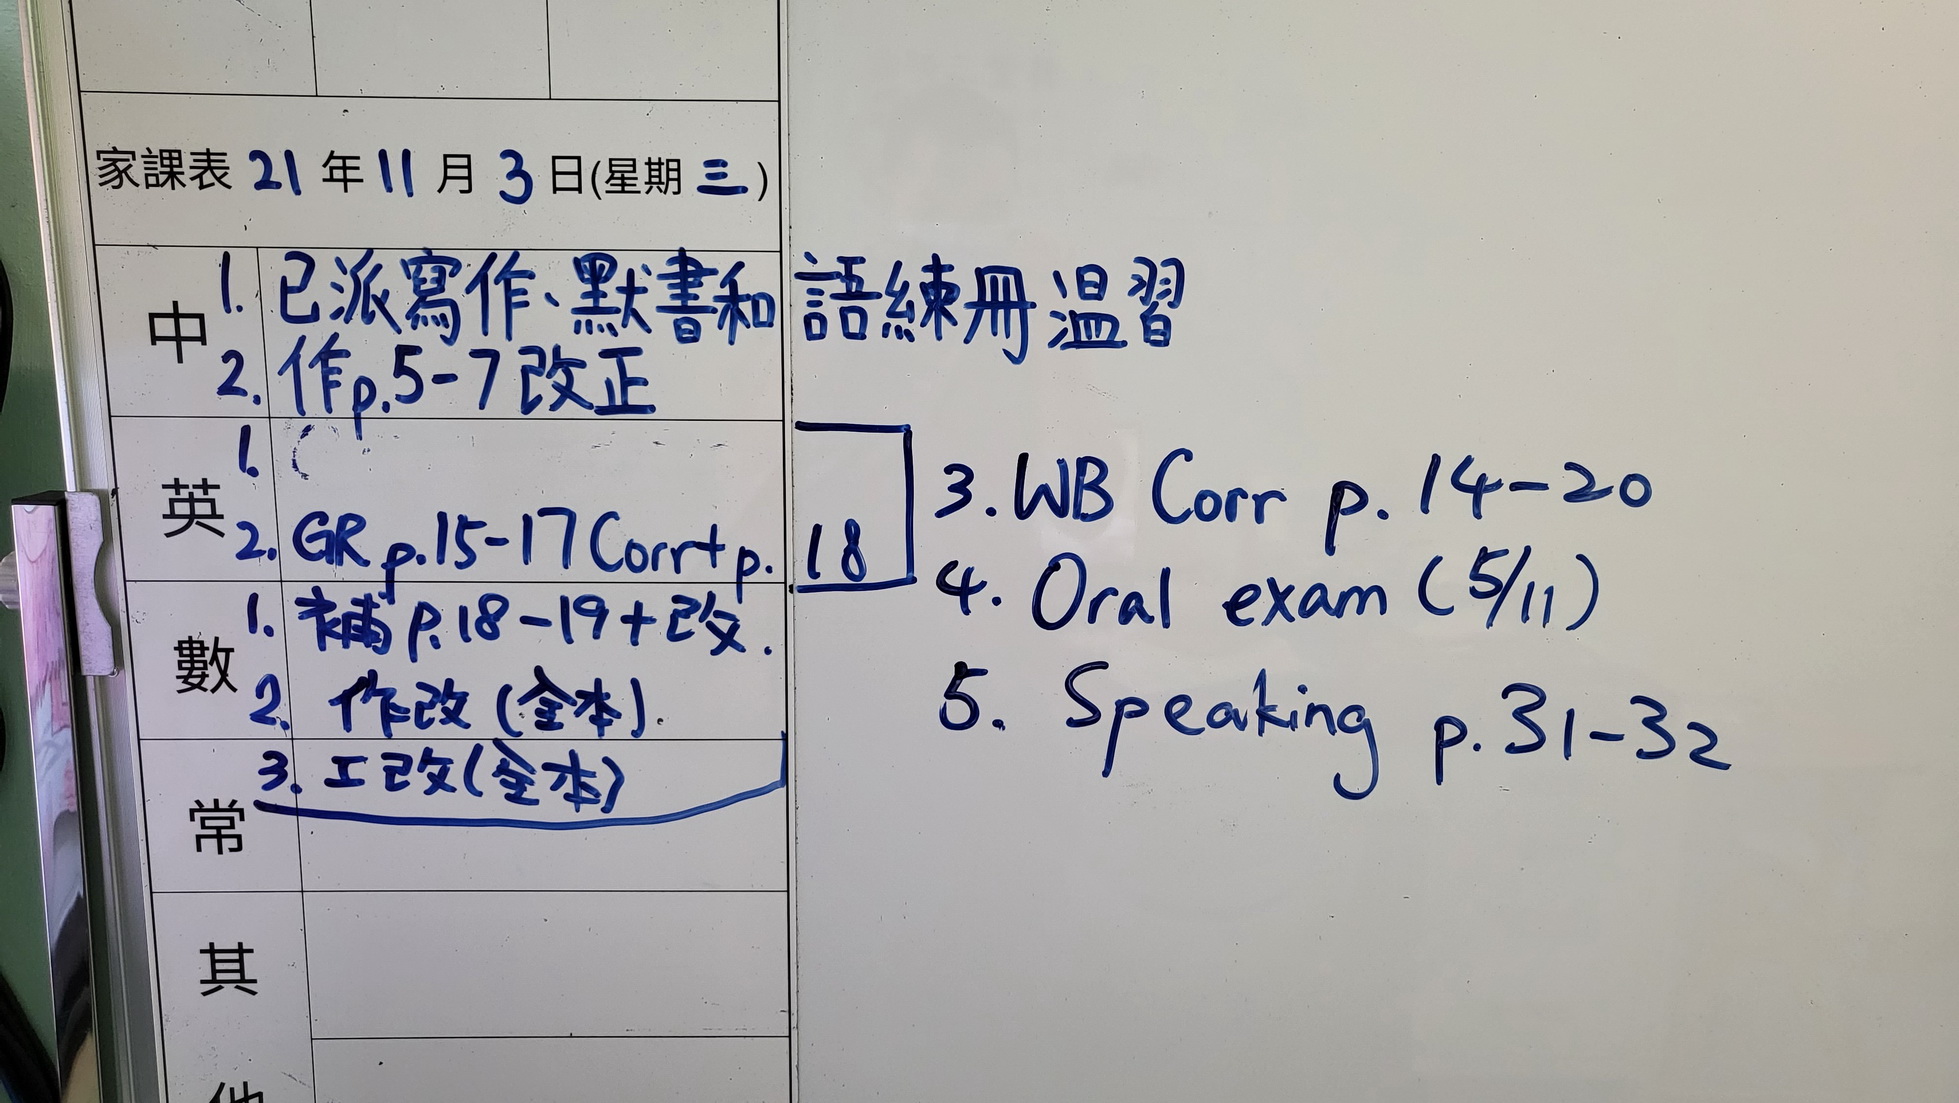 家課表 21 年 11 月 3 日(星期 三)
中
1. 已派寫作、默書和語練冊温習
2. 作p.5-7改正
英
1.
2. GR p.15-17 Corr+ p. 18
3. WB Corr p. 14-20
4. Oral exam (5/11)
5. Speaking p.31-32
數
1. 補 p.18-19+改.
2. 作改 (全本).
3. 工改(全本)
常
其
他